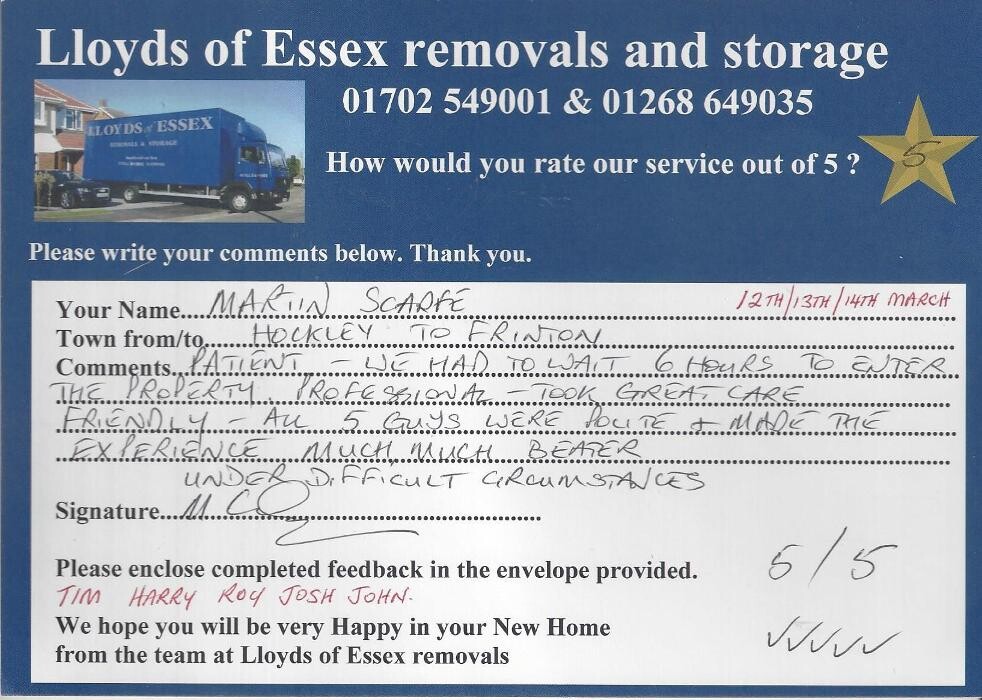 Lloyds of Essex removals and storage
01702 549001 & 01268 649035
LLOYDS of ESSEX
REMOVALS & STORAGE
How would you rate our service out of 5 ?
5
Please write your comments below. Thank you.
12TH/13TH/14TH MARCH
Your Name....MARTIN SCARFE
Town from/to....HOCKLEY TO FRINTON
Comments..PATIENT - WE HAD TO WAIT 6 HOURS TO ENTER
THE PROPERTY. PROFESSIONAL - TOOK GREAT CARE
FRIENDLY - ALL 5 GUYS WERE POLITE + MADE THE
EXPERIENCE MUCH, MUCH BEATER
UNDER DIFFICULT CIRCUMSTANCES
Signature....
5/5
Please enclose completed feedback in the envelope provided.
TIM HARRY ROY JOSH JOHN.
We hope you will be very Happy in your New Home
from the team at Lloyds of Essex removals